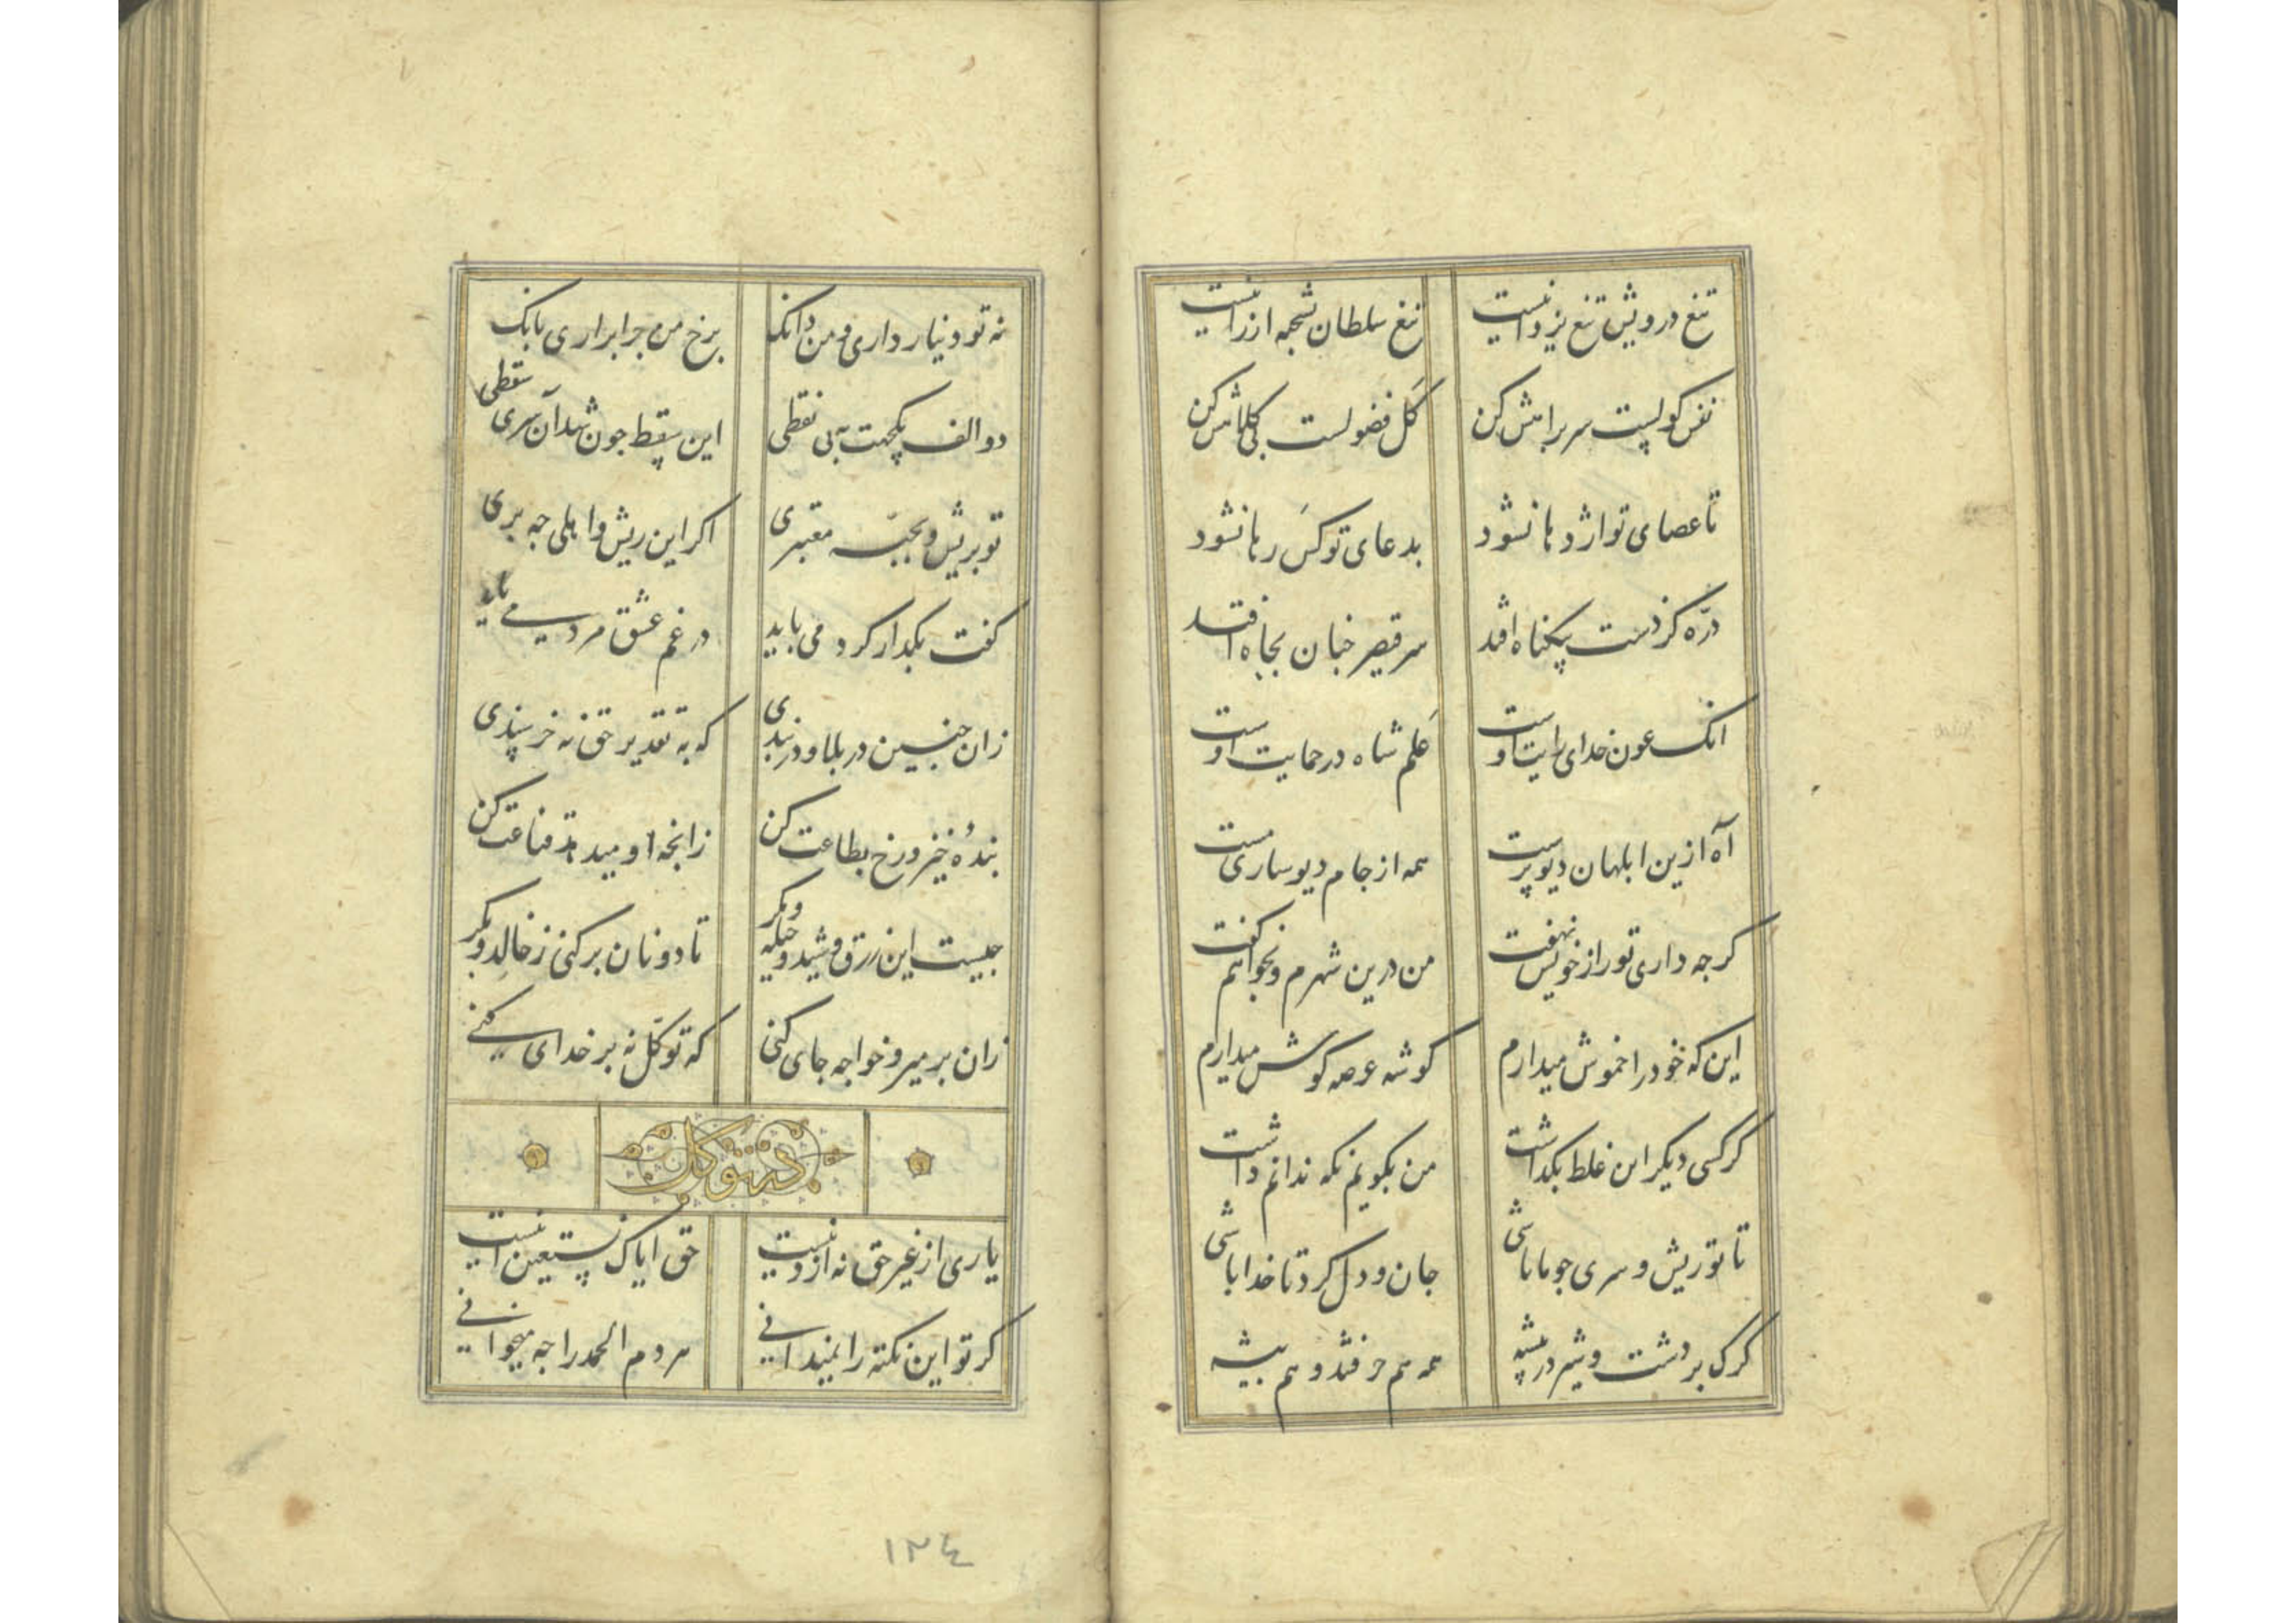 تیغ درویش تیغ یزدانیست تیغ سلطان شحمه ارزانیست
نفس کولیست سر براهش کن کل فضولست بی کلاهش کن
تا عصای تو اژدها نشود بدعای تو کس رها نشود
درّه کز دست بیکناه افتد سر قیصر خبان بجاه افتد
انک عون خدای رایت اوست علم شاه در حمایت اوست
آه ازین ابلهان دیوپرست همه از جام دیوساری مست
کرجه داری تو راز خویش نهفت من درین شهرم و نخواهم کفت
این که خود را خموش میدارم کوشه عرصه کوش میدارم
کر کسی دیکر این غلط بکذاشت من بکویم نکه ندانم داشت
تا تو ریش و سری جو ما باشی جان و دل کرد تا خدا باشی
کرک بر دشت و شیر در بیشه همه هم حرفتند و هم بیشه
نه تو دینار داری و من دانک برخ من جرا براری بانک
دو الف یکجهت به بی نقطی این سقط جون شد آن سری سقطی
تو بریش و بجبّه معتبری اکر این ریش وا هلی جه بری
کفت بکذار کرد می باید در غم عشق مرد می باید
زان جنین در بلا و در بندی که به تقدیر حق نه خرسندی
بندهٔ خیز و رخ بطاعت کن زانجه او میدهد قناعت کن
جیست این زرق و شید و حیله و مکر تا دو نان برکنی ز خالد و بکر
زان بر میر و خواجه جای کنی که توکّل نه بر خدای کنی
در توکل
یاری از غیر حق نه از دینست حق ایاک نستعین اینست
کر تو این نکته را نمیدانی هر دم الحمد را جه میخوانی
١٢٤